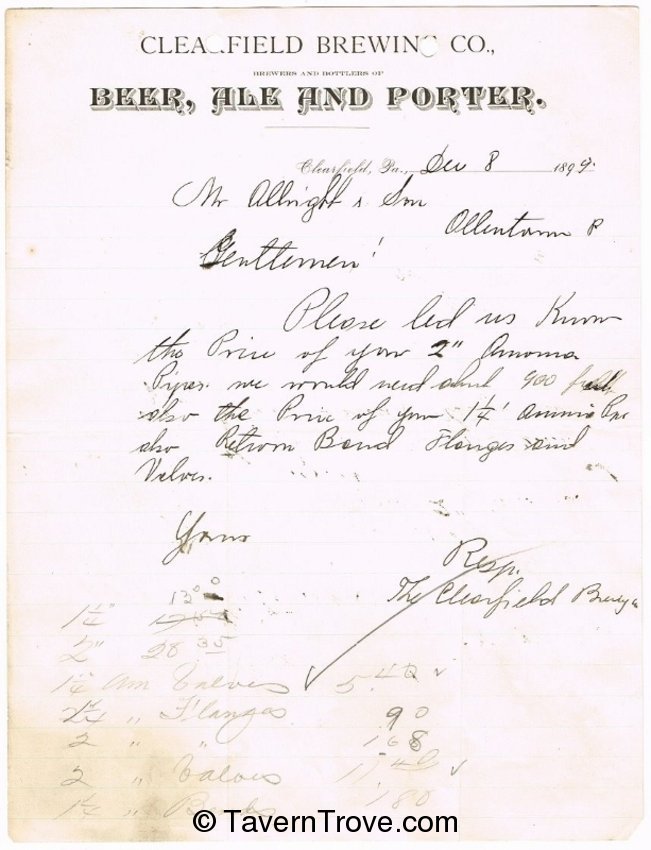 CLEARFIELD BREWING CO.,
BREWERS AND BOTTLERS OF
BEER, ALE AND PORTER.
Clearfield, Pa., Dec 8 1899
Mr Allright & Son
Ollentown P
Gentlemen!
Please led us Know
the Price of your 2" Amonia
Pipes. we would need about 900 feet
also the Price of your 1¼" Amonia Pipe
also Return Band Flanges and
Valves.
Yours
Resp.
The Clearfield Brewg Co
13⁰⁰
1¼"
2" 28 35
1¼ Am Valves 5.40
" Flanges 90
2 " " 168
2 " Valves
1¼ " Bends 180
© TavernTrove.com